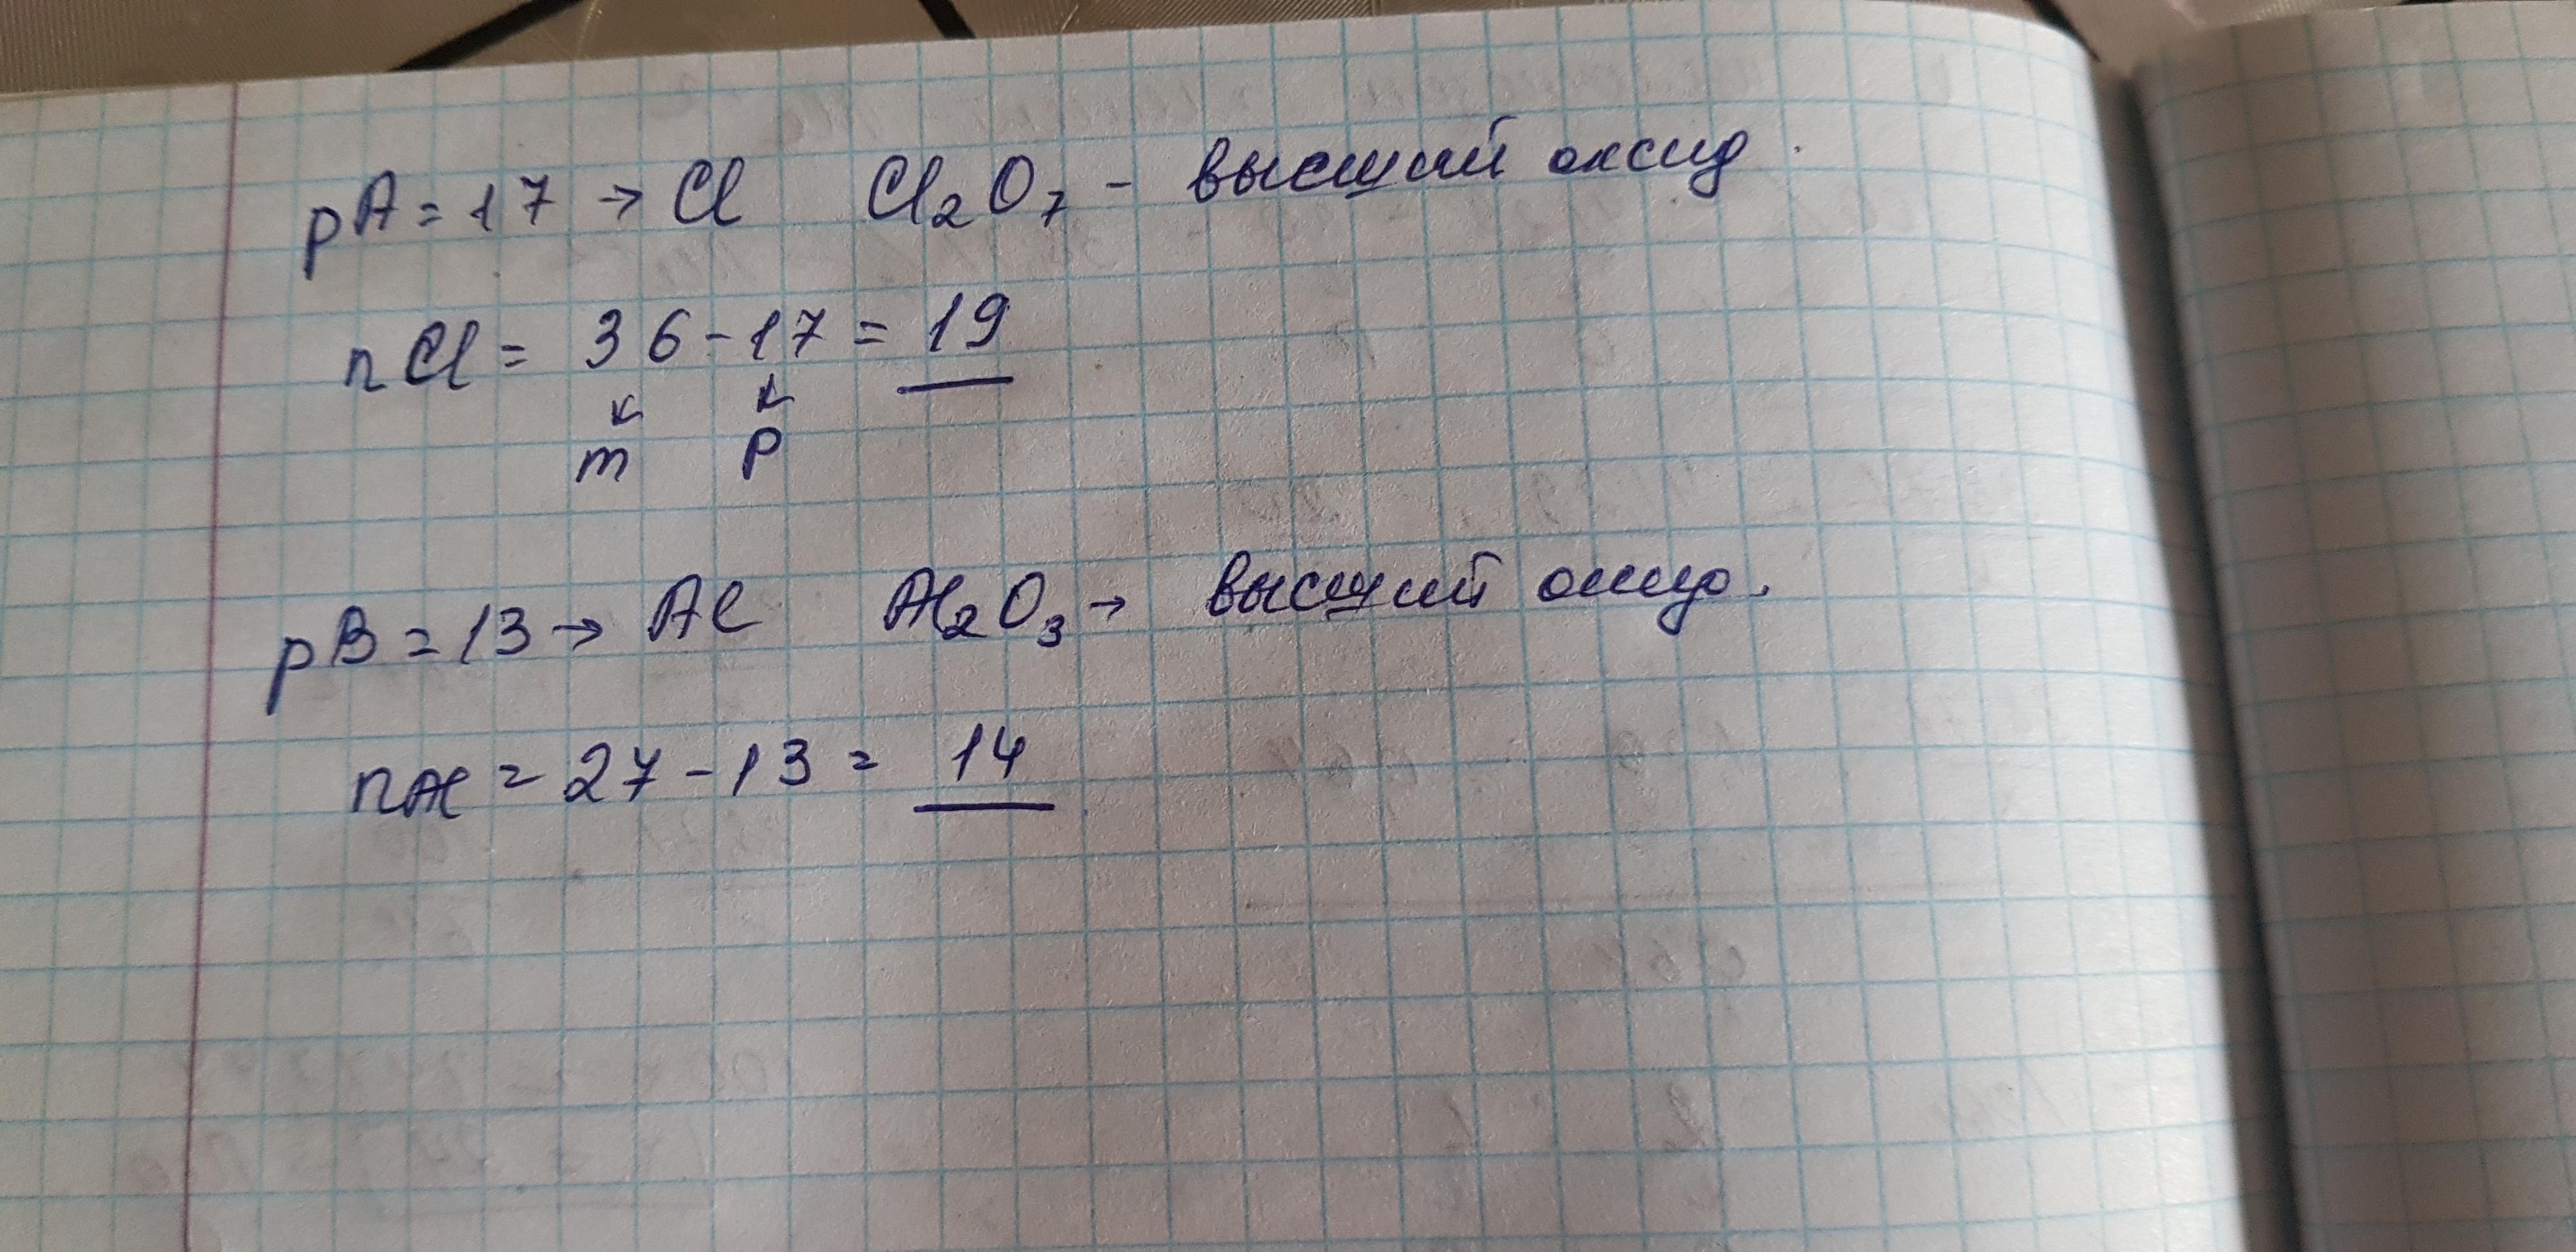 pA = 17 → Cl Cl₂O₇ - высший оксид.
nCl = 36 - 17 = 19
m p
pB = 13 → Al Al₂O₃ → высший оксид.
nAl = 27 - 13 = 14